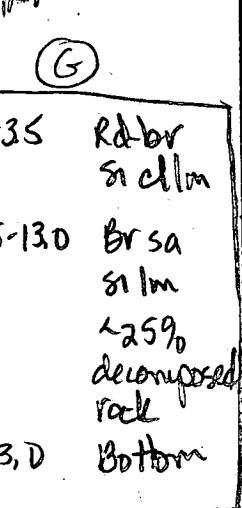 G
35 Rd-br
si cl lm
-13.0 Br sa
si lm
<25%
decomposed
rock
3.0 Bottom